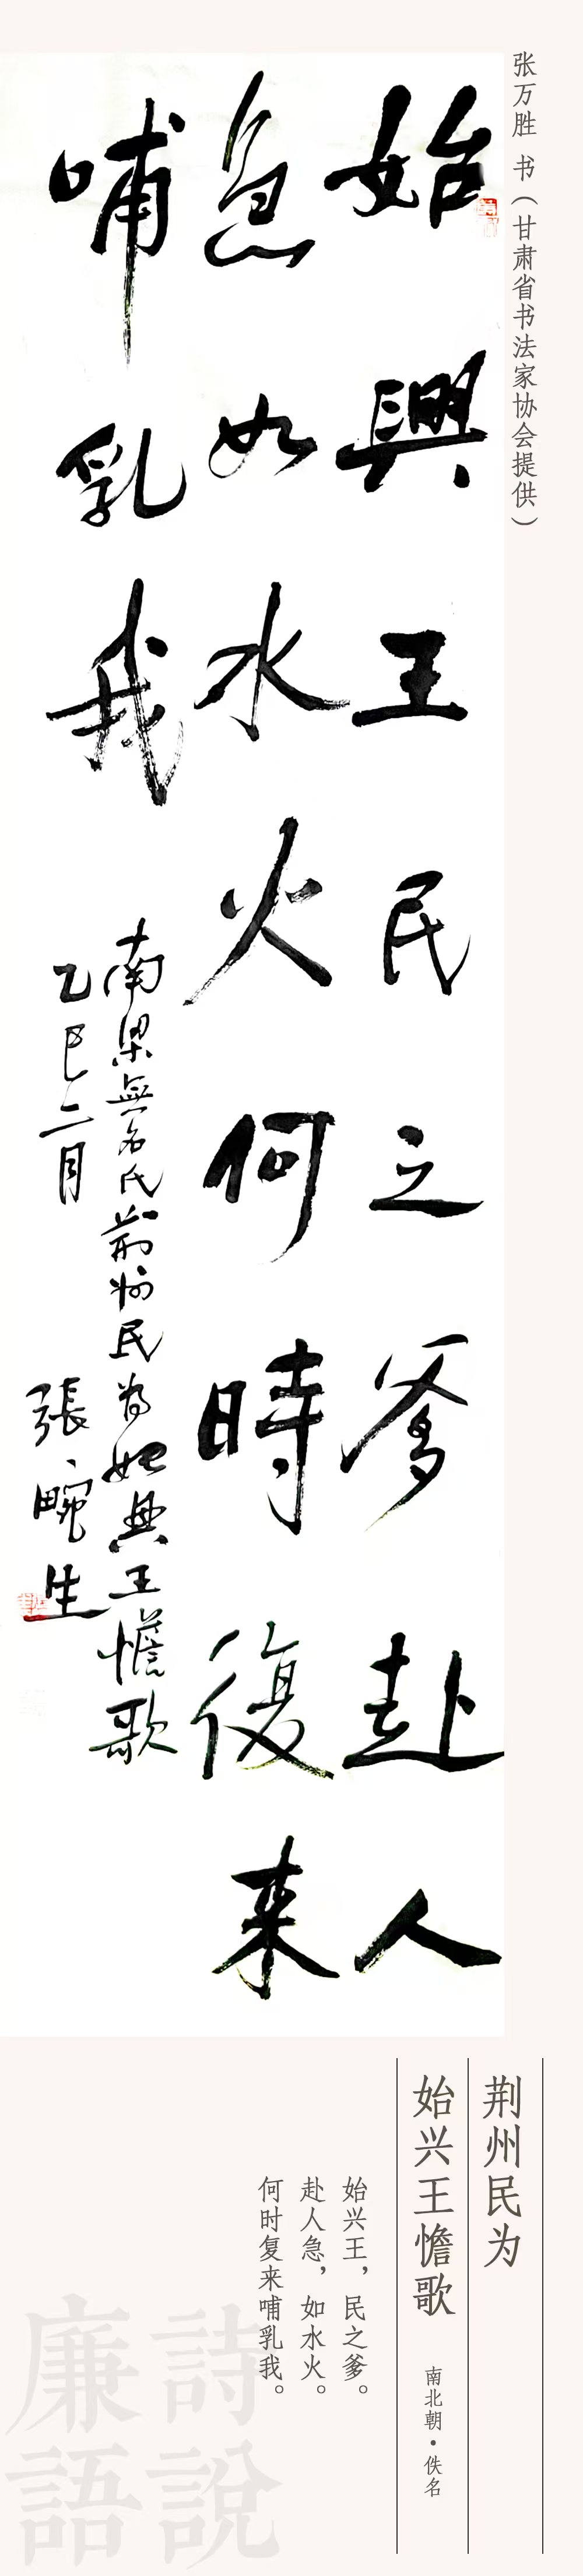 张万胜 书（甘肃省书法家协会提供）
始興王民之爹赴人
急如水火何時復来
哺乳我
南梁無名氏荆州民為始興王憺歌
乙巳二月
張畹生
荆州民为
始兴王憺歌
南北朝·佚名
始兴王，民之爹。
赴人急，如水火。
何时复来哺乳我。
詩說
廉語